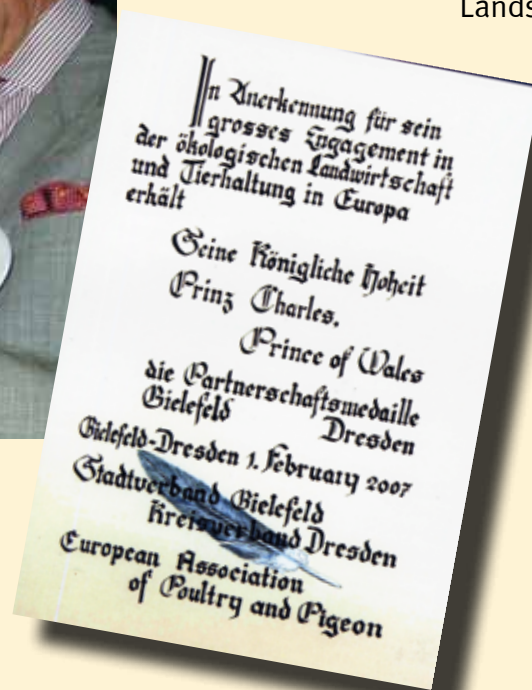 Lands
In Anerkennung für sein
grosses Engagement in
der ökologischen Landwirtschaft
und Tierhaltung in Europa
erhält
Seine Königliche Hoheit
Prinz Charles.
Prince of Wales
die Partnerschaftsmedaille
Bielefeld Dresden
Bielefeld-Dresden 1. February 2007
Stadtverband Bielefeld
Kreisverband Dresden
European Association
of Poultry and Pigeon